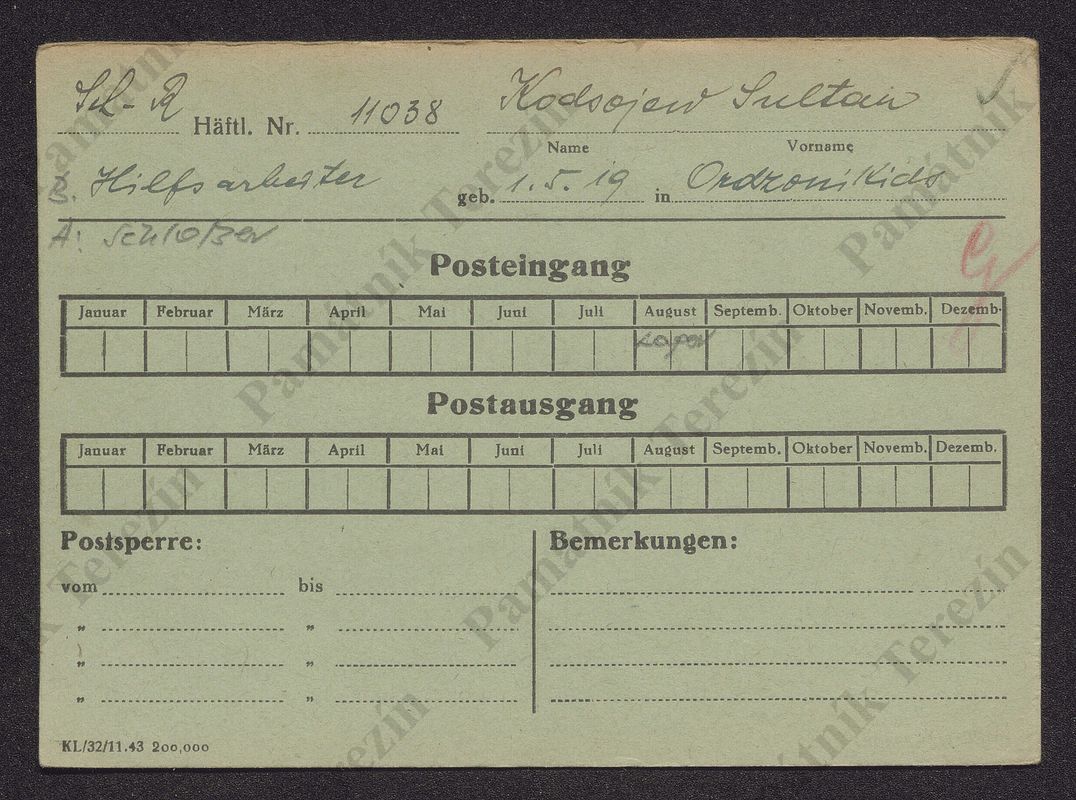 Sch-R Häftl. Nr. 11038 Kodsojew Sultan
Name Vorname
B. Hilfsarbeiter geb. 1.5.19 in Ordzonikids
A: Schloßer
Posteingang
Januar Februar März April Mai Juni Juli August Septemb. Oktober Novemb. Dezemb.
Postausgang
Januar Februar März April Mai Juni Juli August Septemb. Oktober Novemb. Dezemb.
Postsperre: Bemerkungen:
vom bis
„ „
„ „
„ „
KL/32/11.43 200,000
Památník Terezín